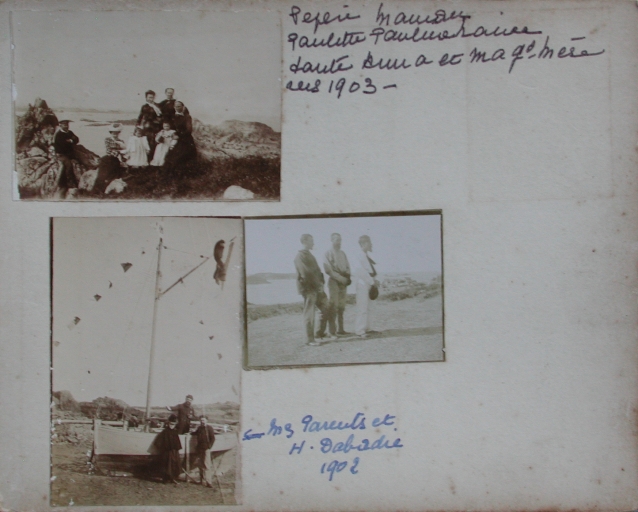 Pepère Maman
Paulette Paul
Tante et ma gd. Mère
vers 1903 -
Mes Parents et
H. Dabadie
1902